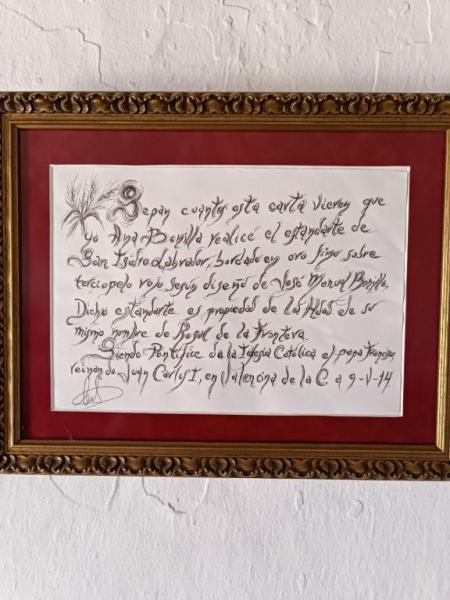 Sepan cuantos esta carta vieron que
yo Ana Bonilla realicé el estandarte de
San Isidro Labrador, bordado en oro fino sobre
terciopelo rojo según diseño de José Manuel Bonilla.
Dicho estandarte es propiedad de la Hdad. de su
mismo nombre de Rosal de la Frontera.
Siendo Pontífice de la Iglesia Católica el papa Francisco,
reinando Juan Carlos I, en Valencina de la C. a 9-V-14